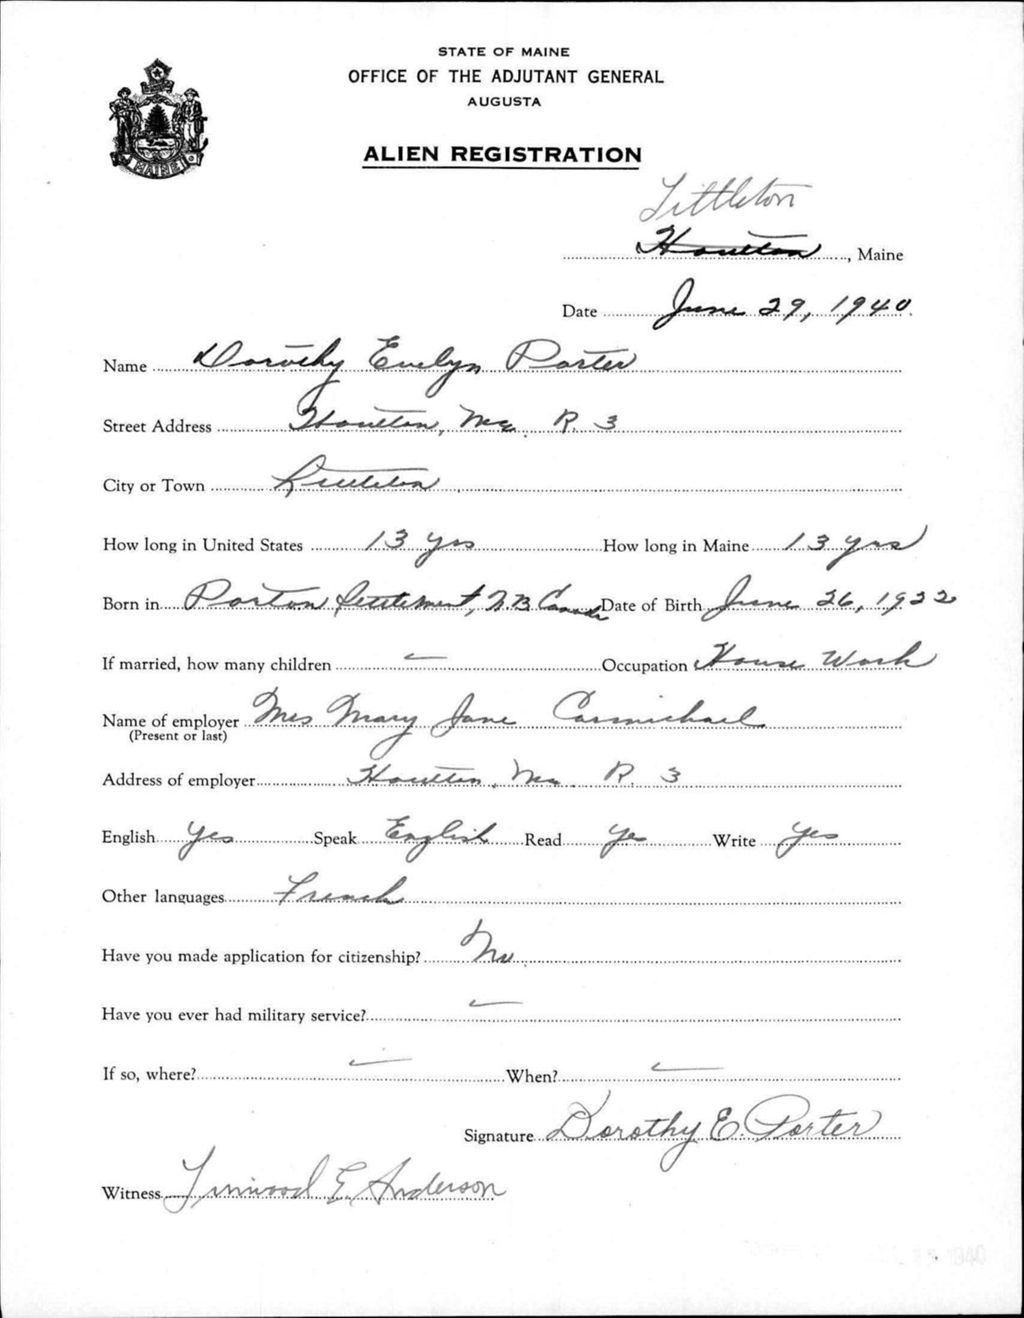 STATE OF MAINE
OFFICE OF THE ADJUTANT GENERAL
AUGUSTA
MAINE
ALIEN REGISTRATION
Littleton
Houlton, Maine
Date June 29, 1940.
Name Dorothy Evelyn Porter
Street Address Houlton, Me. R. 3
City or Town Littleton
How long in United States 13 yrs How long in Maine 13 yrs
Born in Porton Settlement, N.B. Canada Date of Birth June 26, 1922
If married, how many children – Occupation House Work
Name of employer Mrs Mary Jane Carmichael
(Present or last)
Address of employer Houlton, Me. R. 3
English Yes Speak English Read Yes Write Yes
Other languages French
Have you made application for citizenship? No
Have you ever had military service? –
If so, where? – When? –
Signature Dorothy E. Porter
Witness Linwood E. Anderson